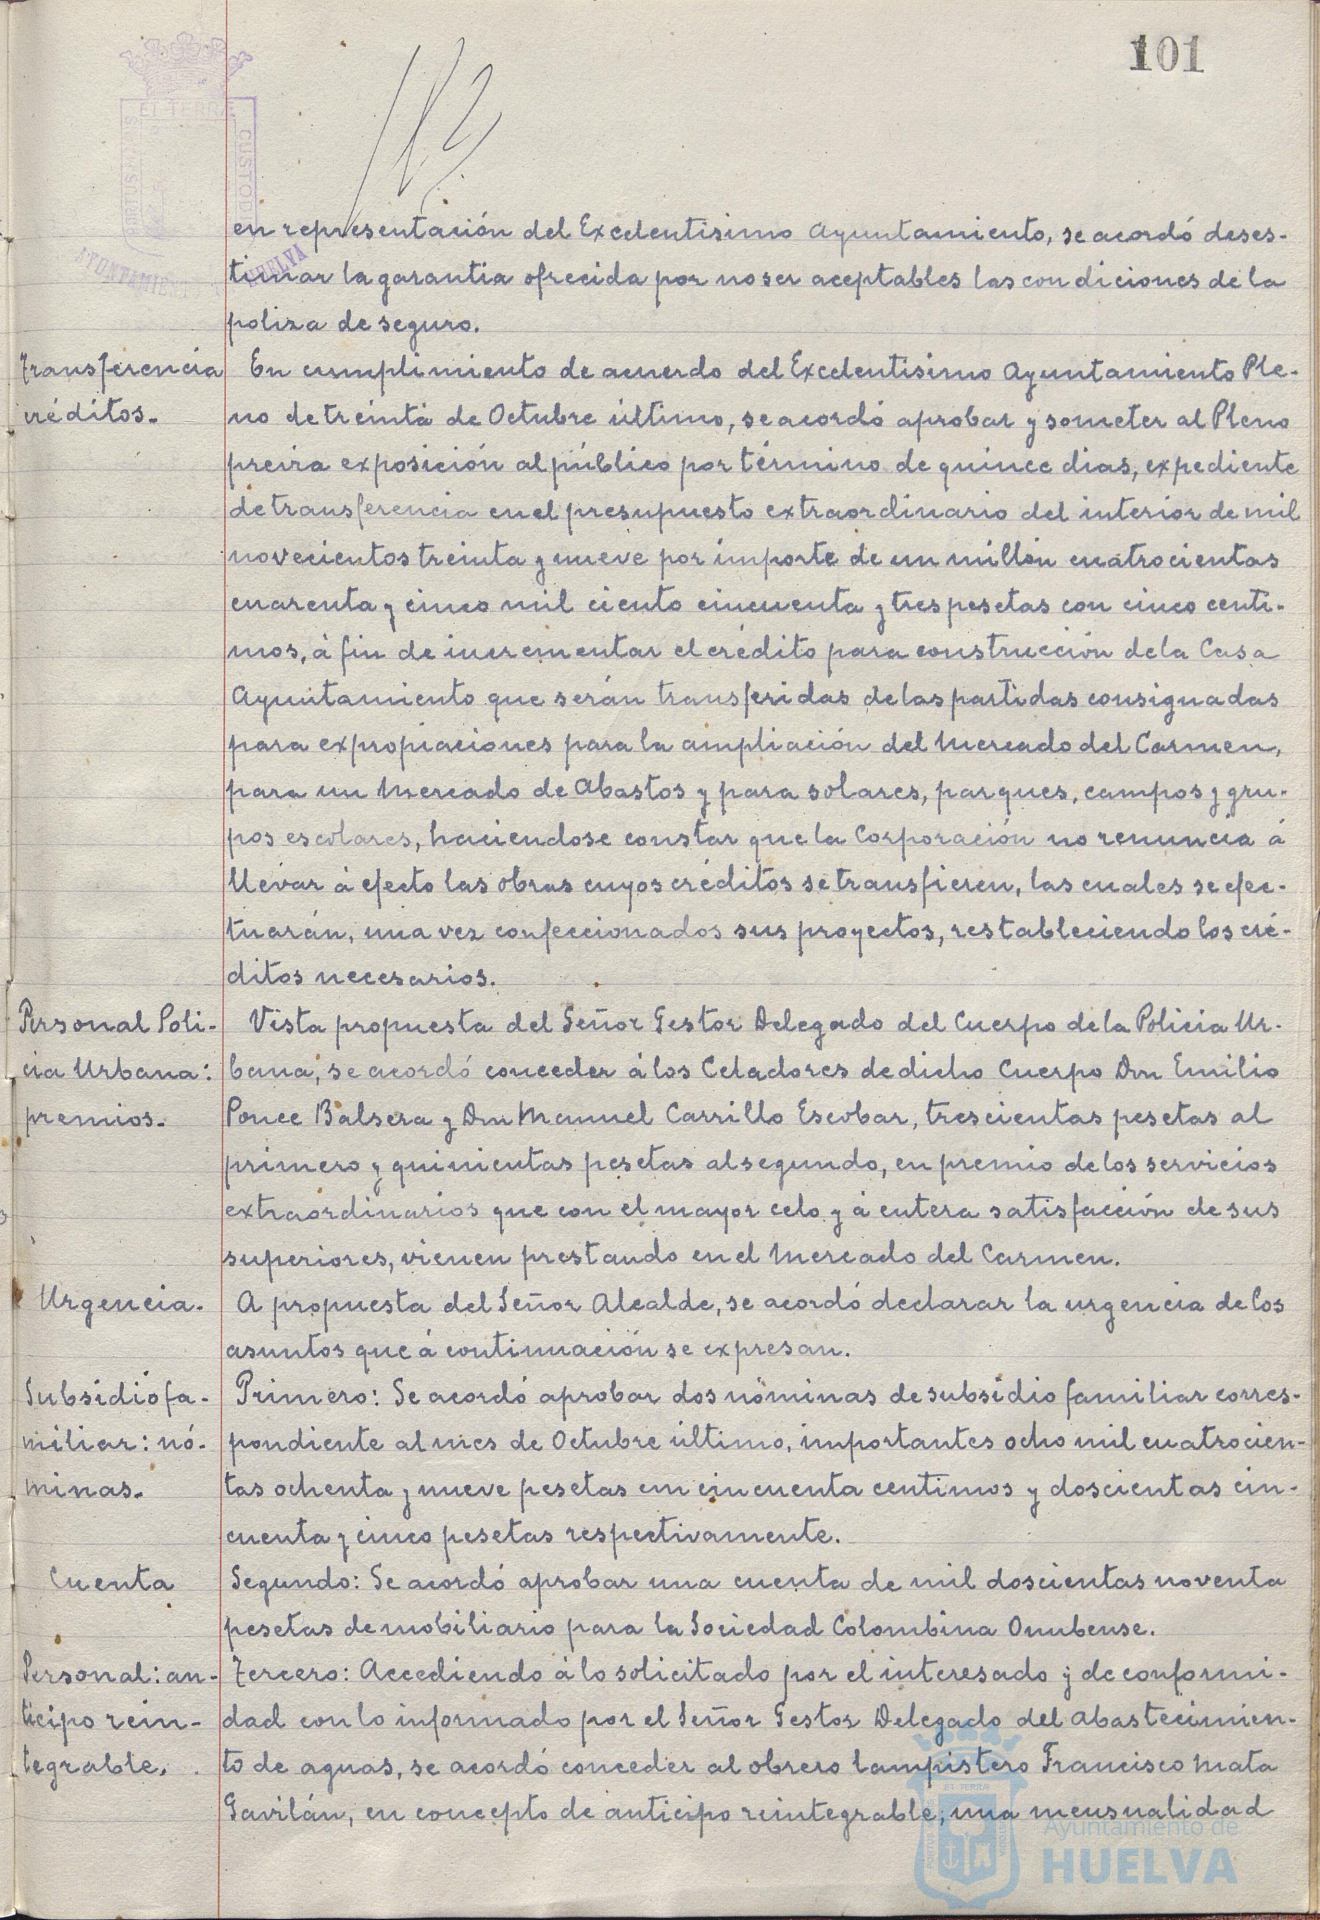 101
EI TERRÆ
CUSTODIA
AYUNTAMIENTO
HUELVA
en representación del Excelentisimo Ayuntamiento, se acordó deses-
timar la garantia ofrecida por no ser aceptables las condiciones de la
poliza de seguro.
Transferencia
créditos.-
En cumplimiento de acuerdo del Excelentisimo Ayuntamiento Ple-
no de treinta de Octubre último, se acordó aprobar y someter al Pleno
previa exposición al público por término de quince dias, expediente
de transferencia en el presupuesto extraordinario del interior de mil
novecientos treinta y nueve por importe de un millón cuatrocientas
cuarenta y cinco mil ciento cincuenta y tres pesetas con cinco centi-
mos, á fin de incrementar el crédito para construcción de la Casa
Ayuntamiento que serán transferidas de las partidas consignadas
para expropiaciones para la ampliación del Mercado del Carmen,
para un Mercado de Abastos y para solares, parques, campos y gru-
pos escolares, haciendose constar que la Corporación no renuncia á
llevar á efecto las obras cuyos créditos se transfieren, las cuales se efec-
tuarán, una vez confeccionados sus proyectos, restableciendo los cré-
ditos necesarios.
Personal Poli-
cia Urbana:
premios.-
Vista propuesta del Señor Gestor Delegado del Cuerpo de la Policia Ur-
bana, se acordó conceder á los Celadores de dicho Cuerpo Don Emilio
Ponce Balsera y Don Manuel Carrillo Escobar, trescientas pesetas al
primero y quinientas pesetas al segundo, en premio de los servicios
extraordinarios que con el mayor celo y á entera satisfacción de sus
superiores, vienen prestando en el Mercado del Carmen.
Urgencia.-
A propuesta del Señor Alcalde, se acordó declarar la urgencia de los
asuntos que á continuación se expresan.
Subsidio fa-
miliar: nó-
minas.-
Primero: Se acordó aprobar dos nóminas de subsidio familiar corres-
pondiente al mes de Octubre último, importantes ocho mil cuatrocien-
tas ochenta y nueve pesetas con cincuenta centimos y doscientas cin-
cuenta y cinco pesetas respectivamente.
Cuenta
Segundo: Se acordó aprobar una cuenta de mil doscientas noventa
pesetas de mobiliario para la Sociedad Colombina Onubense.
Personal: an-
ticipo rein-
tegrable.
Tercero: Accediendo á lo solicitado por el interesado y de conformi-
dad con lo informado por el Señor Gestor Delegado del Abastecimien-
to de aguas, se acordó conceder al obrero lampistero Francisco Mata
Gavilán, en concepto de anticipo reintegrable, una mensualidad
Ayuntamiento de
HUELVA